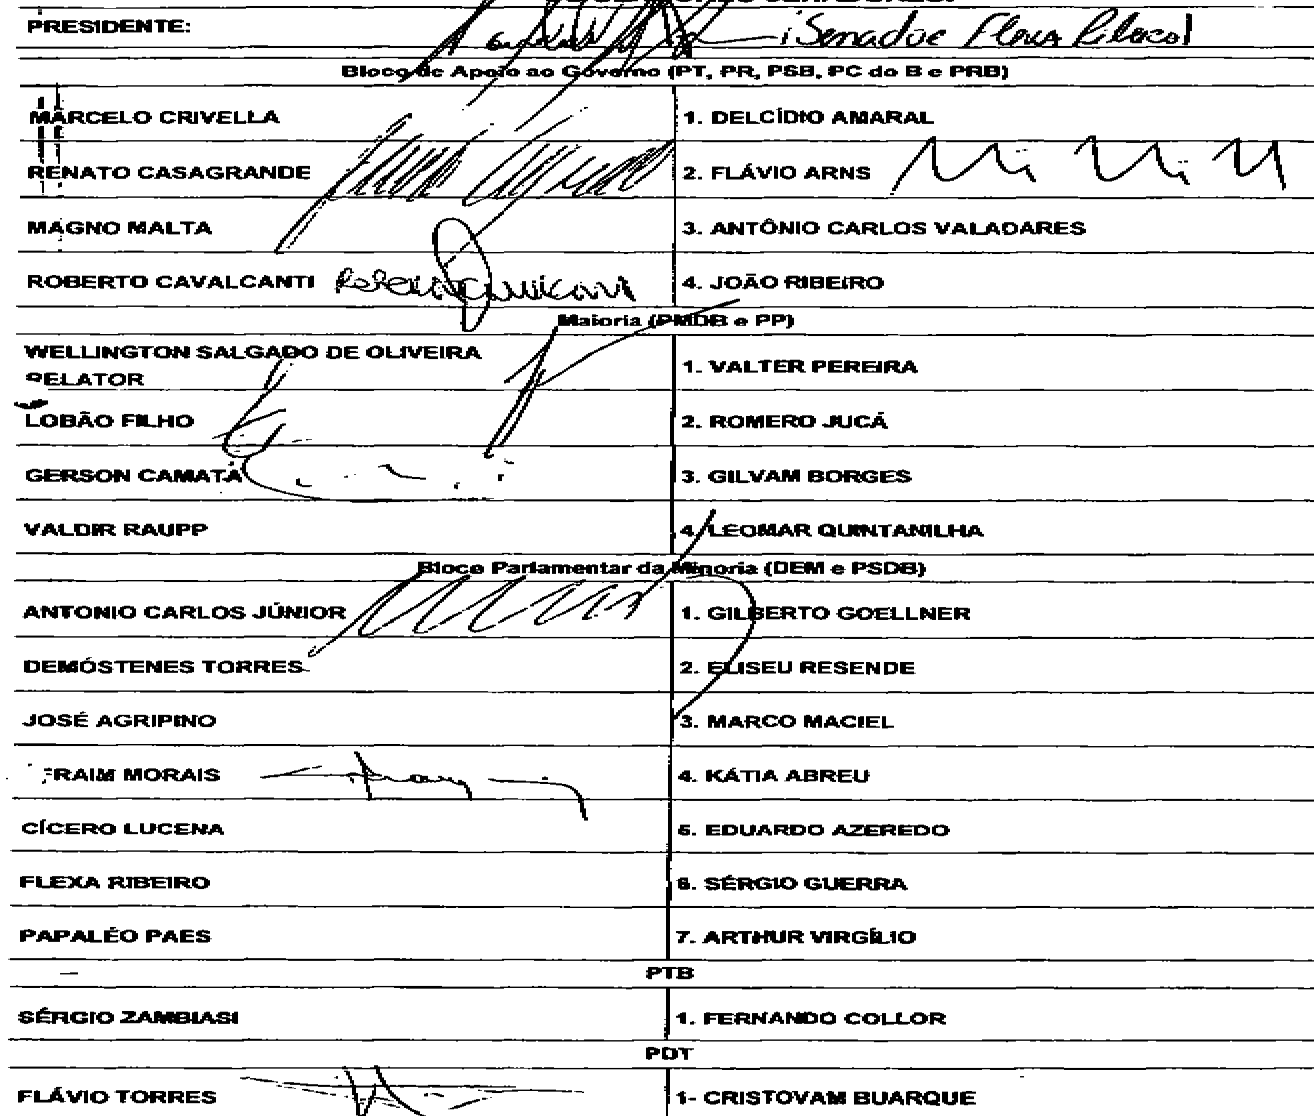 PRESIDENTE: (Senador Flexa Ribeiro)
Bloco de Apoio ao Governo (PT, PR, PSB, PC do B e PRB)
MARCELO CRIVELLA 1. DELCÍDIO AMARAL
RENATO CASAGRANDE 2. FLÁVIO ARNS
MAGNO MALTA 3. ANTÔNIO CARLOS VALADARES
ROBERTO CAVALCANTI 4. JOÃO RIBEIRO
Maioria (PMDB e PP)
WELLINGTON SALGADO DE OLIVEIRA
RELATOR 1. VALTER PEREIRA
LOBÃO FILHO 2. ROMERO JUCÁ
GERSON CAMATA 3. GILVAM BORGES
VALDIR RAUPP 4. LEOMAR QUINTANILHA
Bloco Parlamentar da Minoria (DEM e PSDB)
ANTONIO CARLOS JÚNIOR 1. GILBERTO GOELLNER
DEMÓSTENES TORRES 2. ELISEU RESENDE
JOSÉ AGRIPINO 3. MARCO MACIEL
FRAIM MORAIS 4. KÁTIA ABREU
CÍCERO LUCENA 5. EDUARDO AZEREDO
FLEXA RIBEIRO 6. SÉRGIO GUERRA
PAPALÉO PAES 7. ARTHUR VIRGÍLIO
PTB
SÉRGIO ZAMBIASI 1. FERNANDO COLLOR
PDT
FLÁVIO TORRES 1- CRISTOVAM BUARQUE